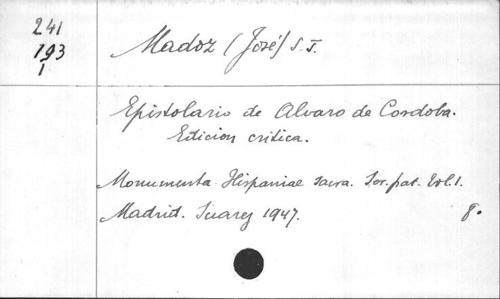 241
193
1
Madoz (José) S.J.
Epistolario de Alvaro de Cordoba.
Edicion critica.
Monumenta Hispaniae sacra. Ser. pat. Vol. 1.
Madrid. Suarez 1947.
8.